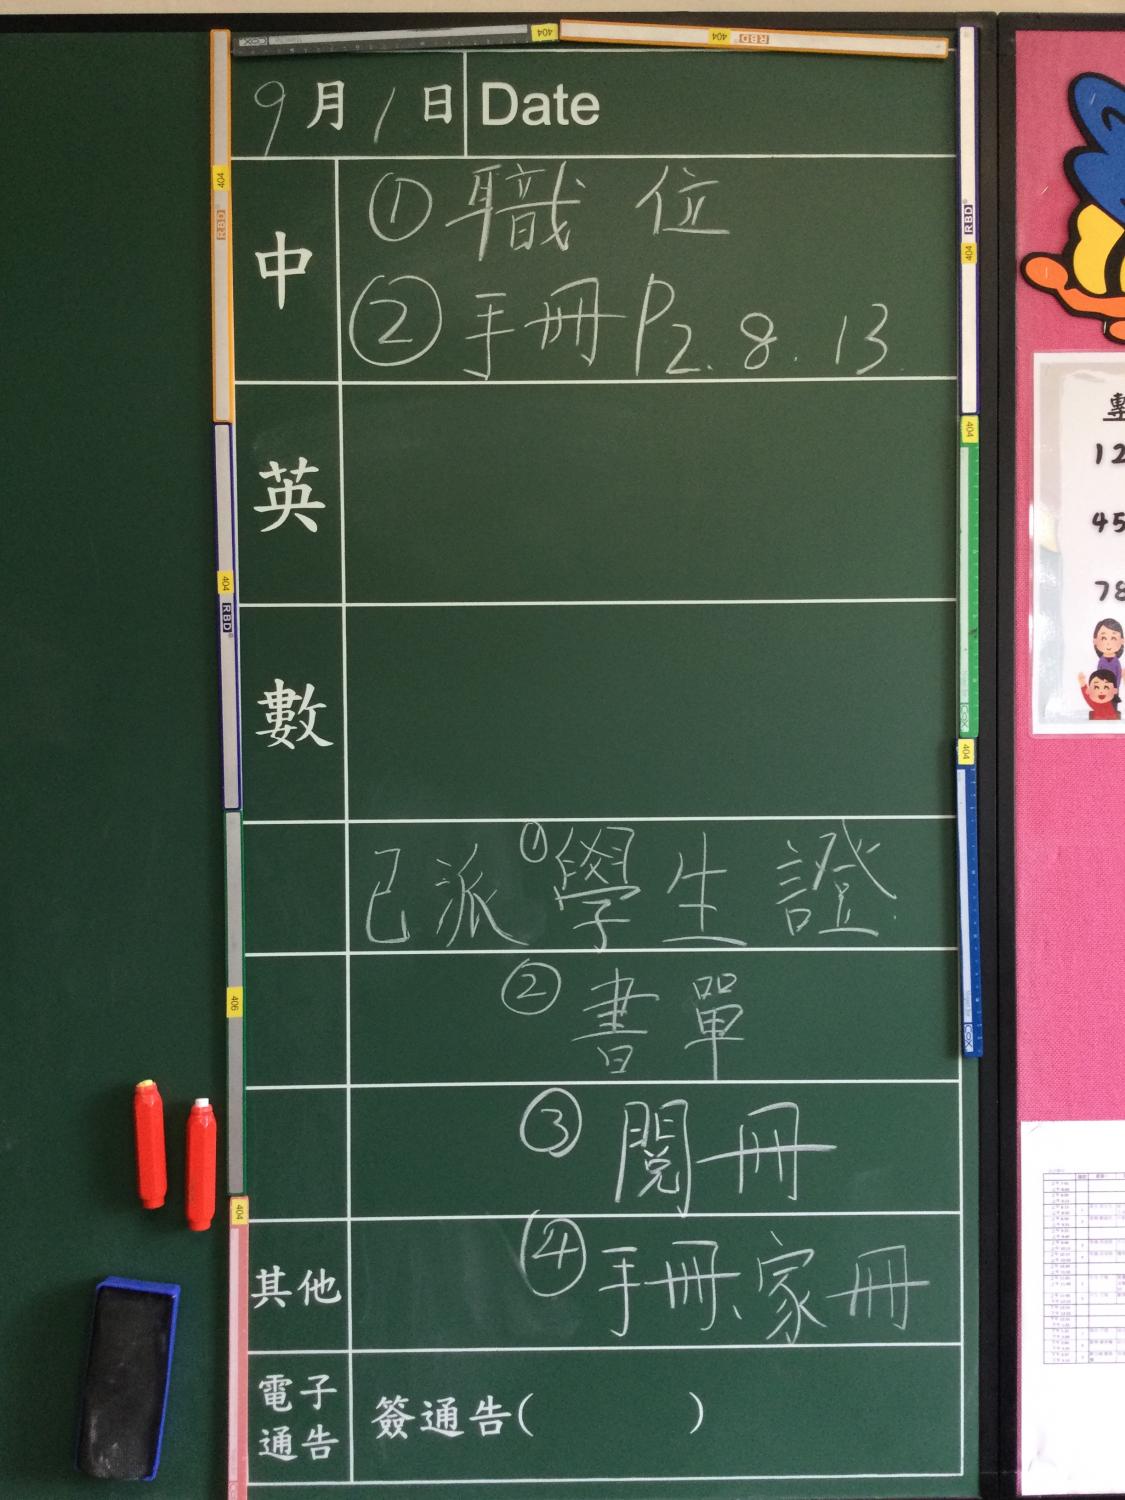 9月1日 Date
中 ①職位
②手冊P2.8.13.
英
數
已派①學生證
②書單
③閱冊
其他 ④手冊、家冊
電子通告 簽通告( )
404
404 RBD
404 RBD
RBD 404
404 RBD
404
COX
404
COX
406
404
12
45
78